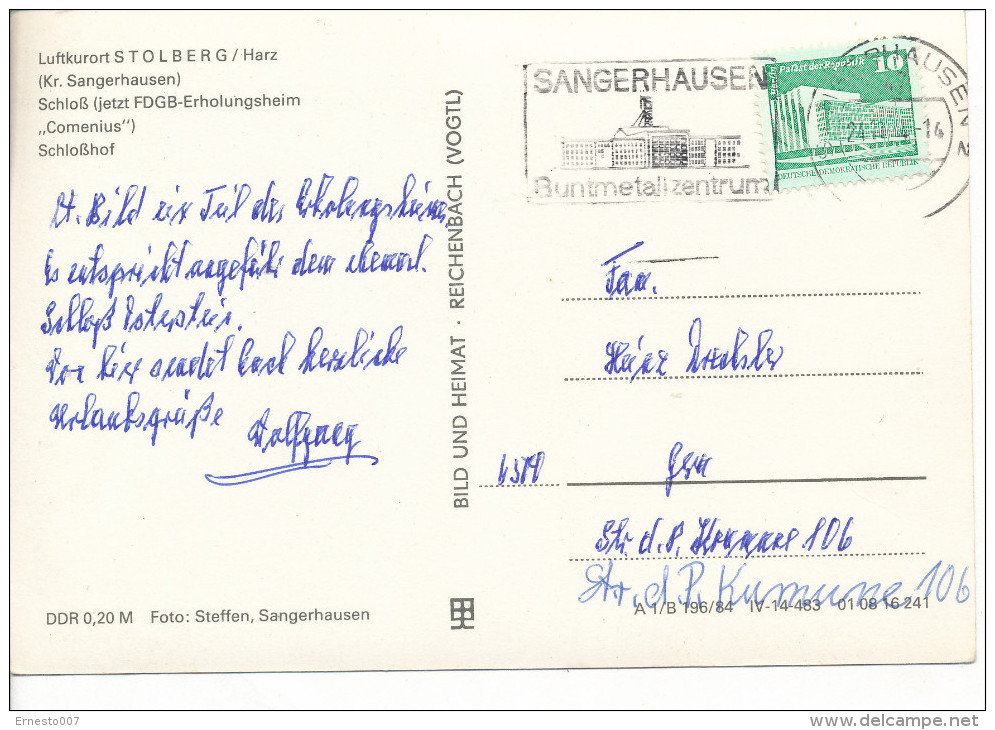 Luftkurort STOLBERG / Harz
(Kr. Sangerhausen)
Schloß (jetzt FDGB-Erholungsheim
„Comenius“)
Schloßhof
Lt. Bild ein Teil des Erholungsheims
Es entspricht ungefähr dem ehemal.
Schloß Osterstein.
Von hier sendet Euch herzliche
Urlaubsgrüße
Wolfgang
DDR 0,20 M Foto: Steffen, Sangerhausen
BILD UND HEIMAT · REICHENBACH (VOGTL)
SANGERHAUSEN
Buntmetallzentrum
10
DEUTSCHE DEMOKRATISCHE REPUBLIK
Fam.
Heinz
Gera
Str. d. P. Kommune 106
Str. d. P. Kumune 106
A 1/B 196/84 IV-14-483 01 08 16 241
Ernesto007
delcampe.net